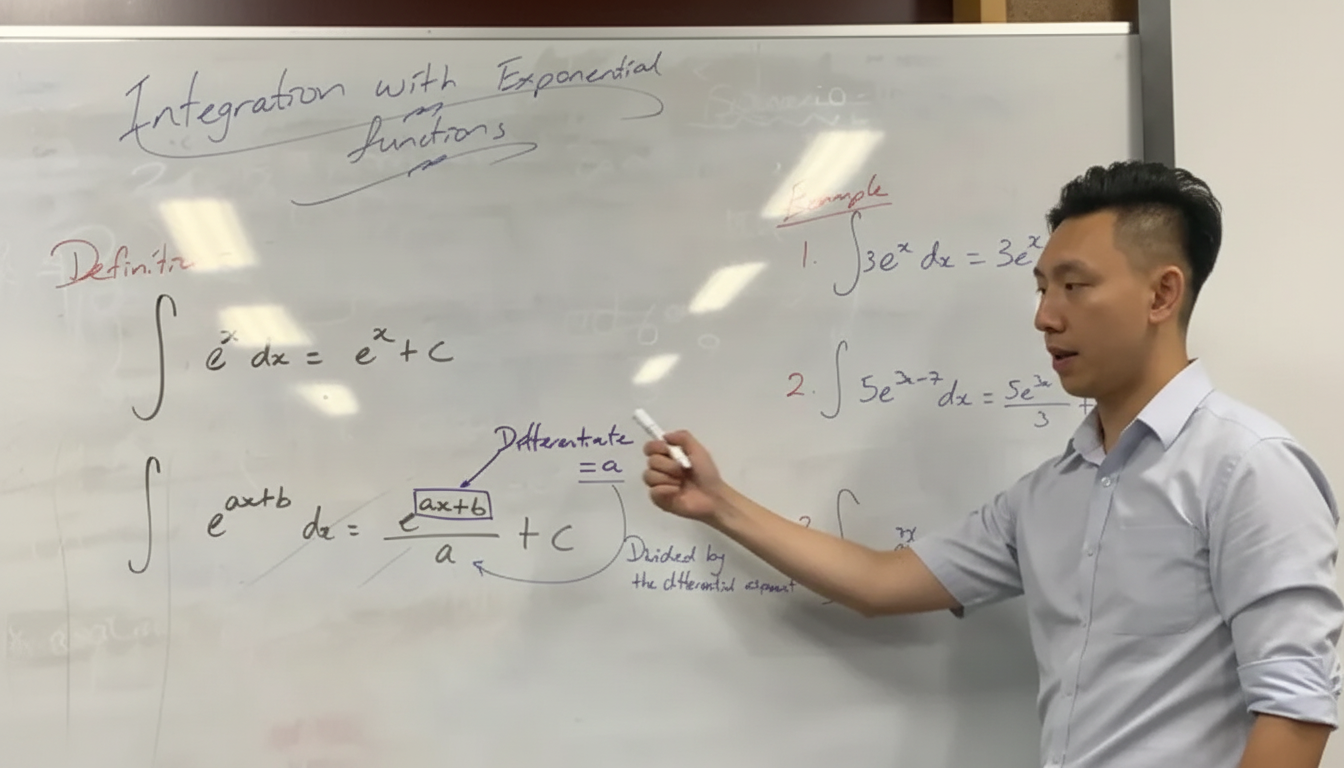 Integration with Exponential
functions
Definiti
∫ e^x dx = e^x + c
∫ e^(ax+b) dx = e^(ax+b)/a + c
Differentiate
= a
Divided by
the differential
Example
1. ∫ 3e^x dx = 3e^x
2. ∫ 5e^(3x-7) dx = 5e^(3x)/3 +
∫